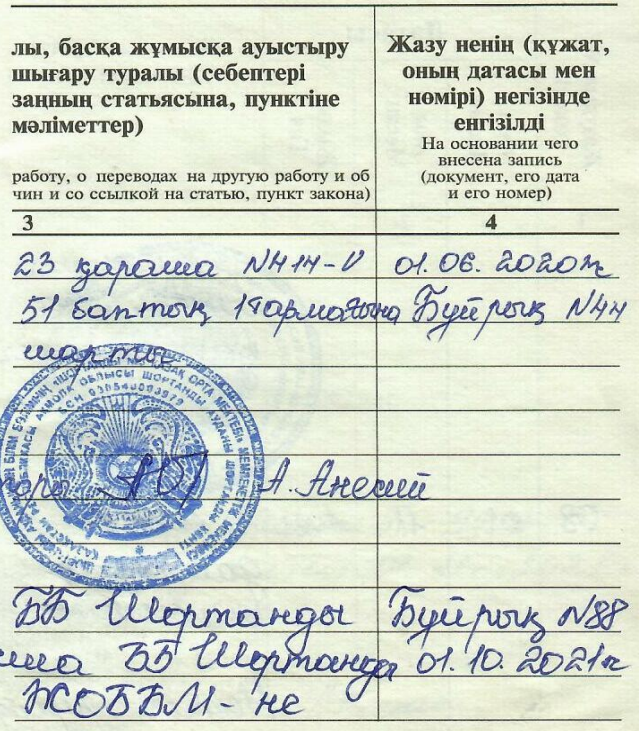 лы, басқа жұмысқа ауыстыру
шығару туралы (себептері
заңның статьясына, пунктіне
мәліметтер)
работу, о переводах на другую работу и об
чин и со ссылкой на статью, пункт закона)
Жазу ненің (құжат,
оның датасы мен
нөмірі) негізінде
енгізілді
На основании чего
внесена запись
(документ, его дата
и его номер)
3 4
23 қараша №414-V 01.06.2020ж
51 баптың 1 тармағына Бұйрық №44
шарты
А. Анесий
ББ Шортанды Бұйрық №88
ББ Шортанды 01.10.2021ж
ЖОББМ-не